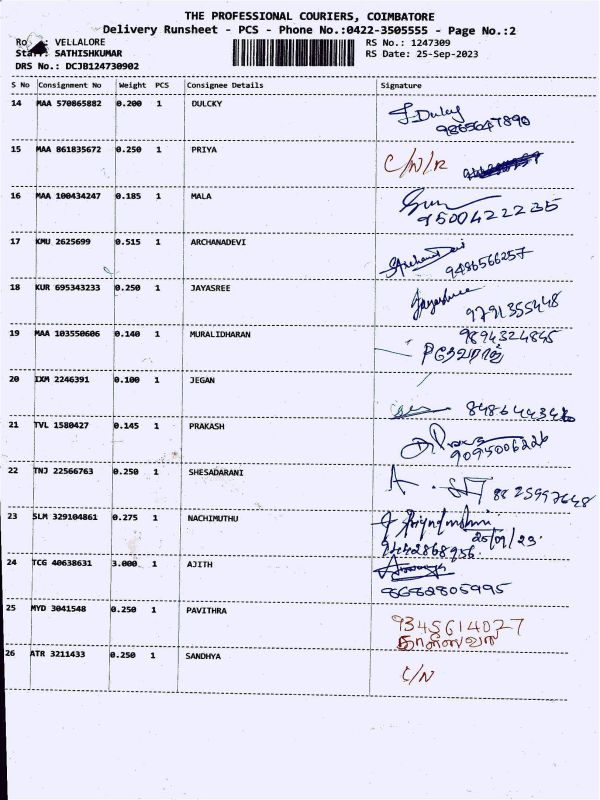 THE PROFESSIONAL COURIERS, COIMBATORE
Delivery Runsheet - PCS - Phone No.:0422-3505555 - Page No.:2
VELLALORE RS No.: 1247309
SATHISHKUMAR RS Date: 25-Sep-2023
DRS No.: DCJB124730902
S No Consignment No Weight PCS Consignee Details Signature
14 MAA 570865882 0.200 1 DULCKY J. Dulcy
9865647890
15 MAA 861835672 0.250 1 PRIYA C/N/R
16 MAA 100434247 0.185 1 MALA
9500422235
17 KMU 2625699 0.515 1 ARCHANADEVI Archana Devi
9486566257
18 KUR 695343233 0.250 1 JAYASREE Jayashree
9791355448
19 MAA 103550606 0.140 1 MURALIDHARAN 9894324845
20 IXM 2246391 0.100 1 JEGAN
21 TVL 1580427 0.145 1 PRAKASH
9095006226
22 TNJ 22566763 0.250 1 SHESADARANI
8825997648
23 SLM 329104861 0.275 1 NACHIMUTHU
25/09/23
9442868956
24 TCG 40638631 3.000 1 AJITH
8682805995
25 MYD 3041548 0.250 1 PAVITHRA 9345614027
26 ATR 3211433 0.250 1 SANDHYA C/N